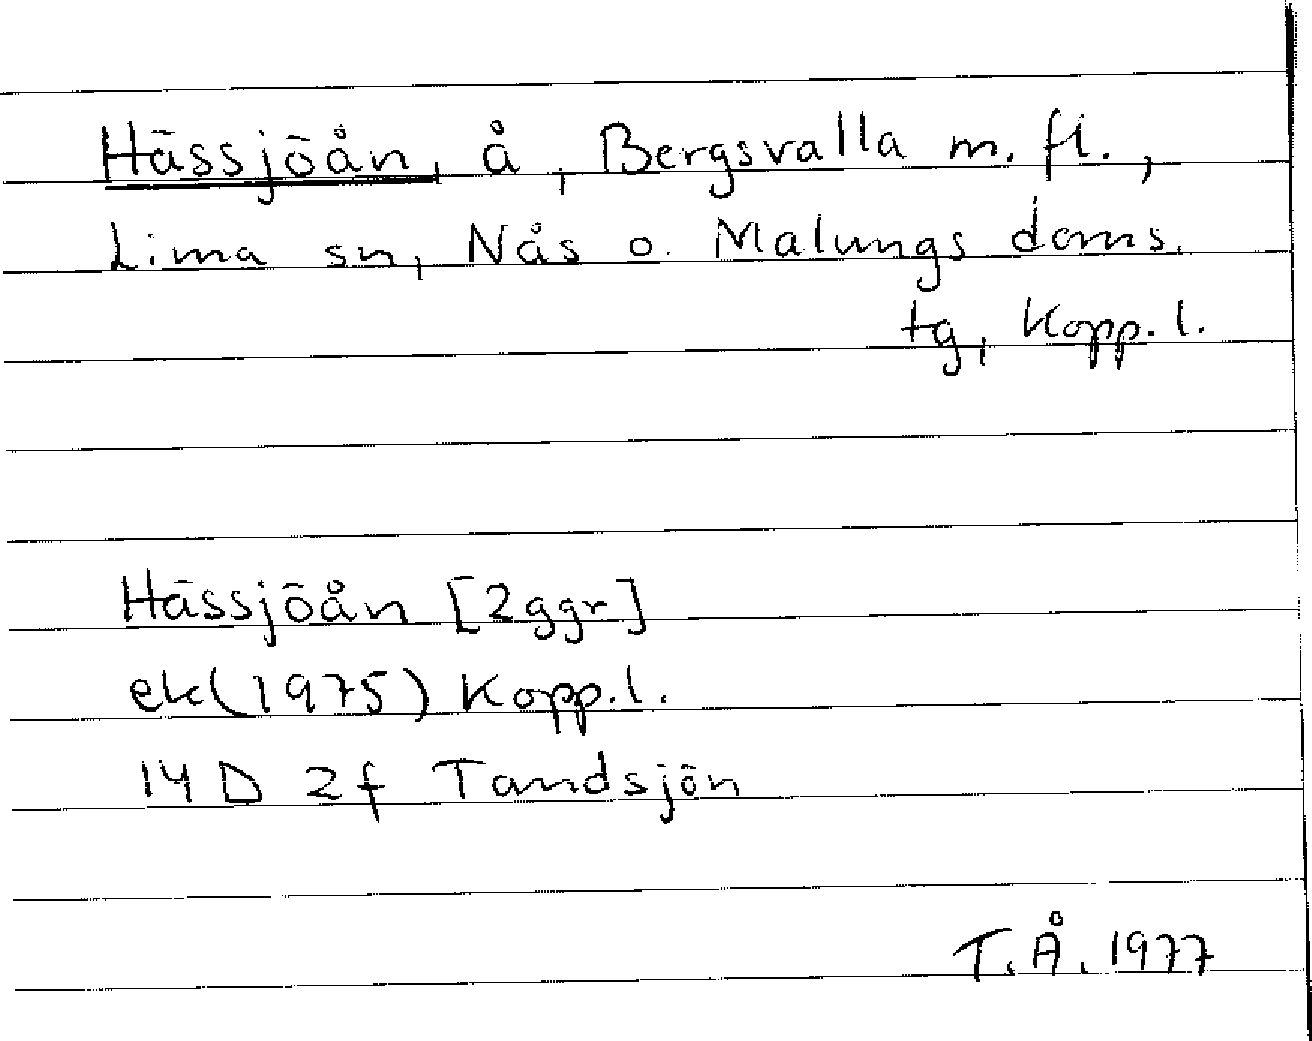 Hässjöån, å, Bergsvalla m. fl.,
Lima sn, Nås o. Malungs doms.
tg, Kopp. l.
Hässjöån [2ggr]
ek(1975) Kopp.l.
14 D 2f Tandsjön
T. Å. 1977